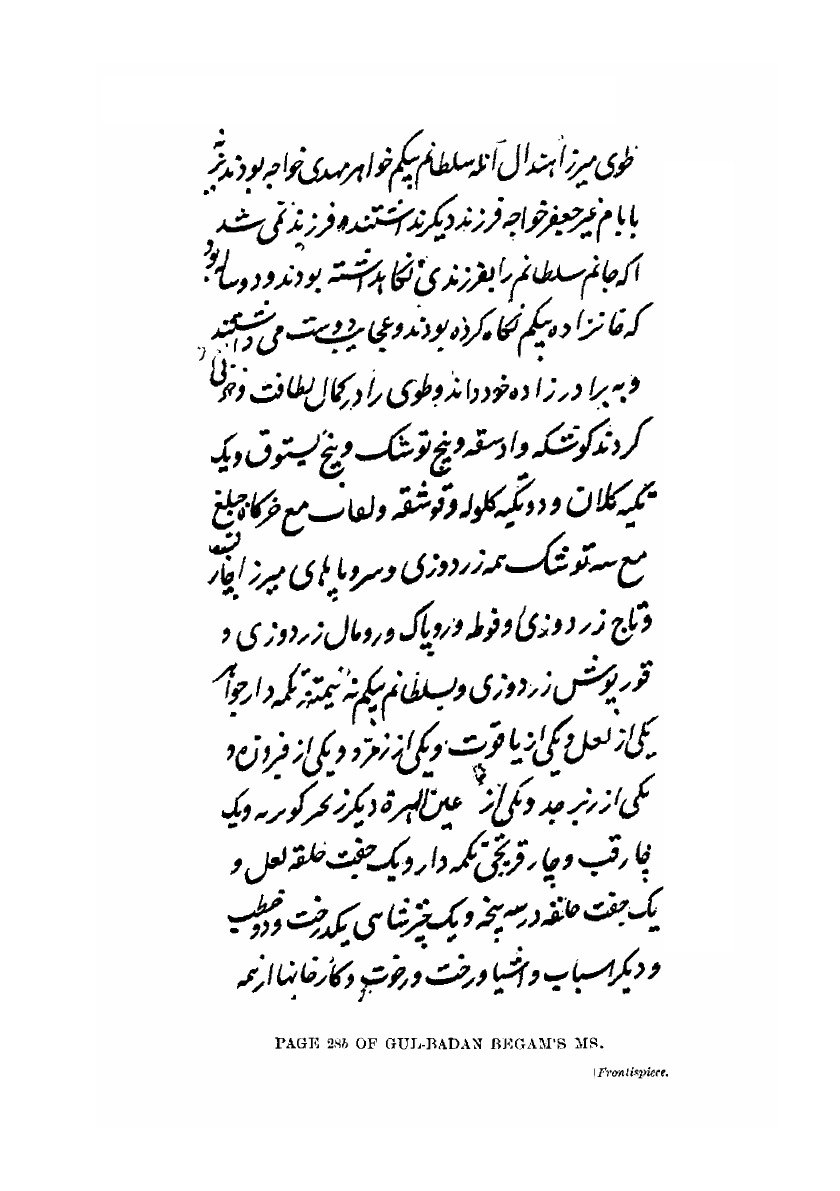 طوی میرزا هندال آنکه سلطانم بیگم خواهر مهدی خواجه بودند
بابام غیر جعفر خواجه فرزند دیگر نداشتند و فرزند نمی شد
اکه جانم سلطانم را بفرزندی نگاه داشته بودند و دو ساله بود
که خانزاده بیگم نگاه کرده بودند و عجایب دوست می داشتند
و به برادرزاده خود دانند و طوی را در کمال لطافت و خوبی
کردند کوشکه و ادسقه و پنج توشک و پنج یستوق و یک
تکیه کلان و دو تکیه کلوله و قوشقه و لقاب مع خرگاه
مع سه توشک همه زردوزی و سر و پاهای میرزا چارقب
و تاج زردوزی و فوطه و روپاک و رومال زردوزی و
قور پوش زردوزی و بسلطانم بیگم نه نیمتنه تکمه دار جواهر
یکی از لعل و یکی از یاقوت و یکی از زمرد و یکی از فیروزه و
یکی از زبرجد و یکی از عین الهره دیگر ز بحر گوهر نه و یک
چارقب و چار قریجی تکمه دار و یک جفت حلقه لعل و
یک جفت حلقه در سه پنجه و یک چتر شاهی یک درخت و دو خطب
و دیگر اسباب و اشیا و رخت و رخوت و کارخانها از همه
PAGE 28b OF GUL-BADAN BEGAM'S MS.
[Frontispiece.